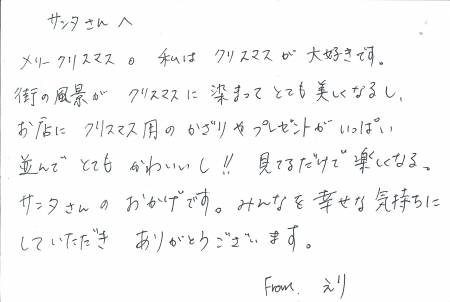 サンタさんへ
メリークリスマス。私は クリスマスが 大好きです。
街の風景が クリスマスに 染まって とても 美しくなるし、
お店に クリスマス用の かざりや プレゼントが いっぱい
並んで とても かわいいし!! 見てるだけで 楽しくなる。
サンタさんの おかげです。みんなを 幸せな 気持ちに
していただき ありがとうございます。
From. えり